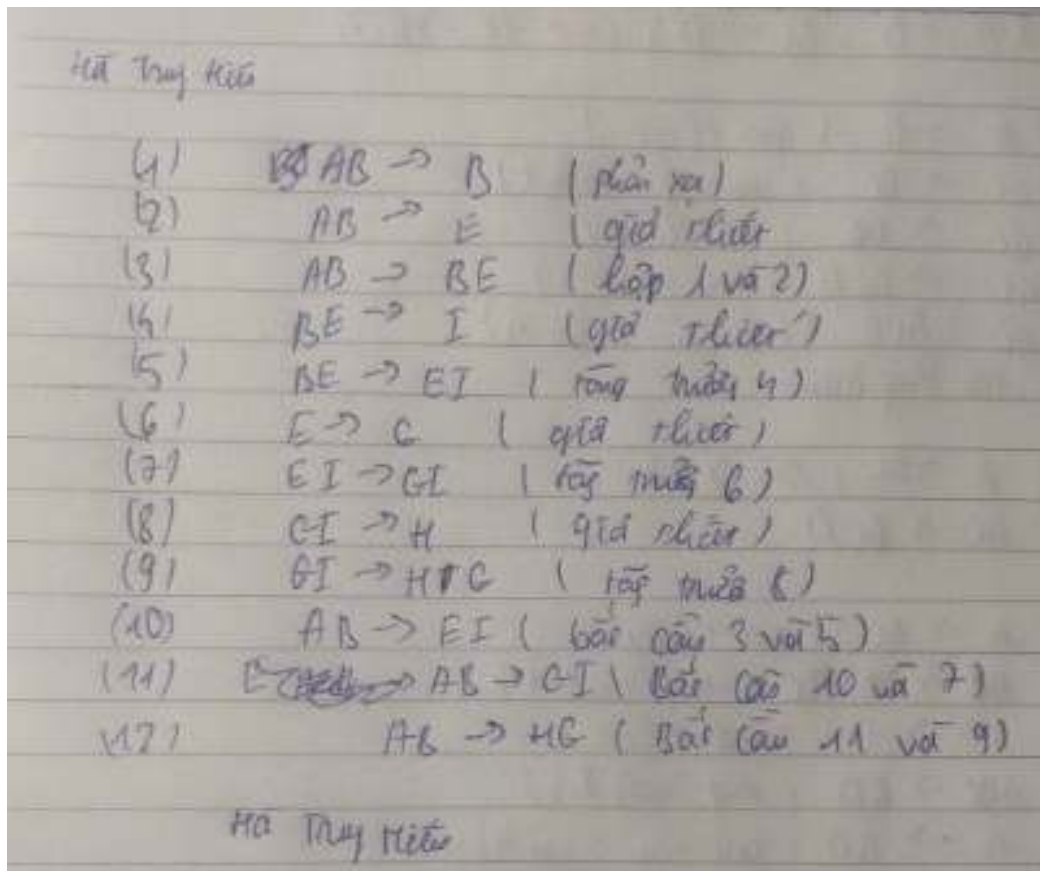 Hà Truy Hiếu
(1) AB → B (phản xạ)
(2) AB → E (giả thiết
(3) AB → BE (hợp 1 và 2)
(4) BE → I (giả thiết)
(5) BE → EI (tăng trưởng 4)
(6) E → G (giả thiết)
(7) EI → GI (tăng trưởng 6)
(8) GI → H (giả thiết)
(9) GI → HG (tăng trưởng 8)
(10) AB → EI (bắc cầu 3 và 5)
(11) AB → GI (Bắc cầu 10 và 7)
(12) AB → HG (Bắc cầu 11 và 9)
Hà Truy Hiếu